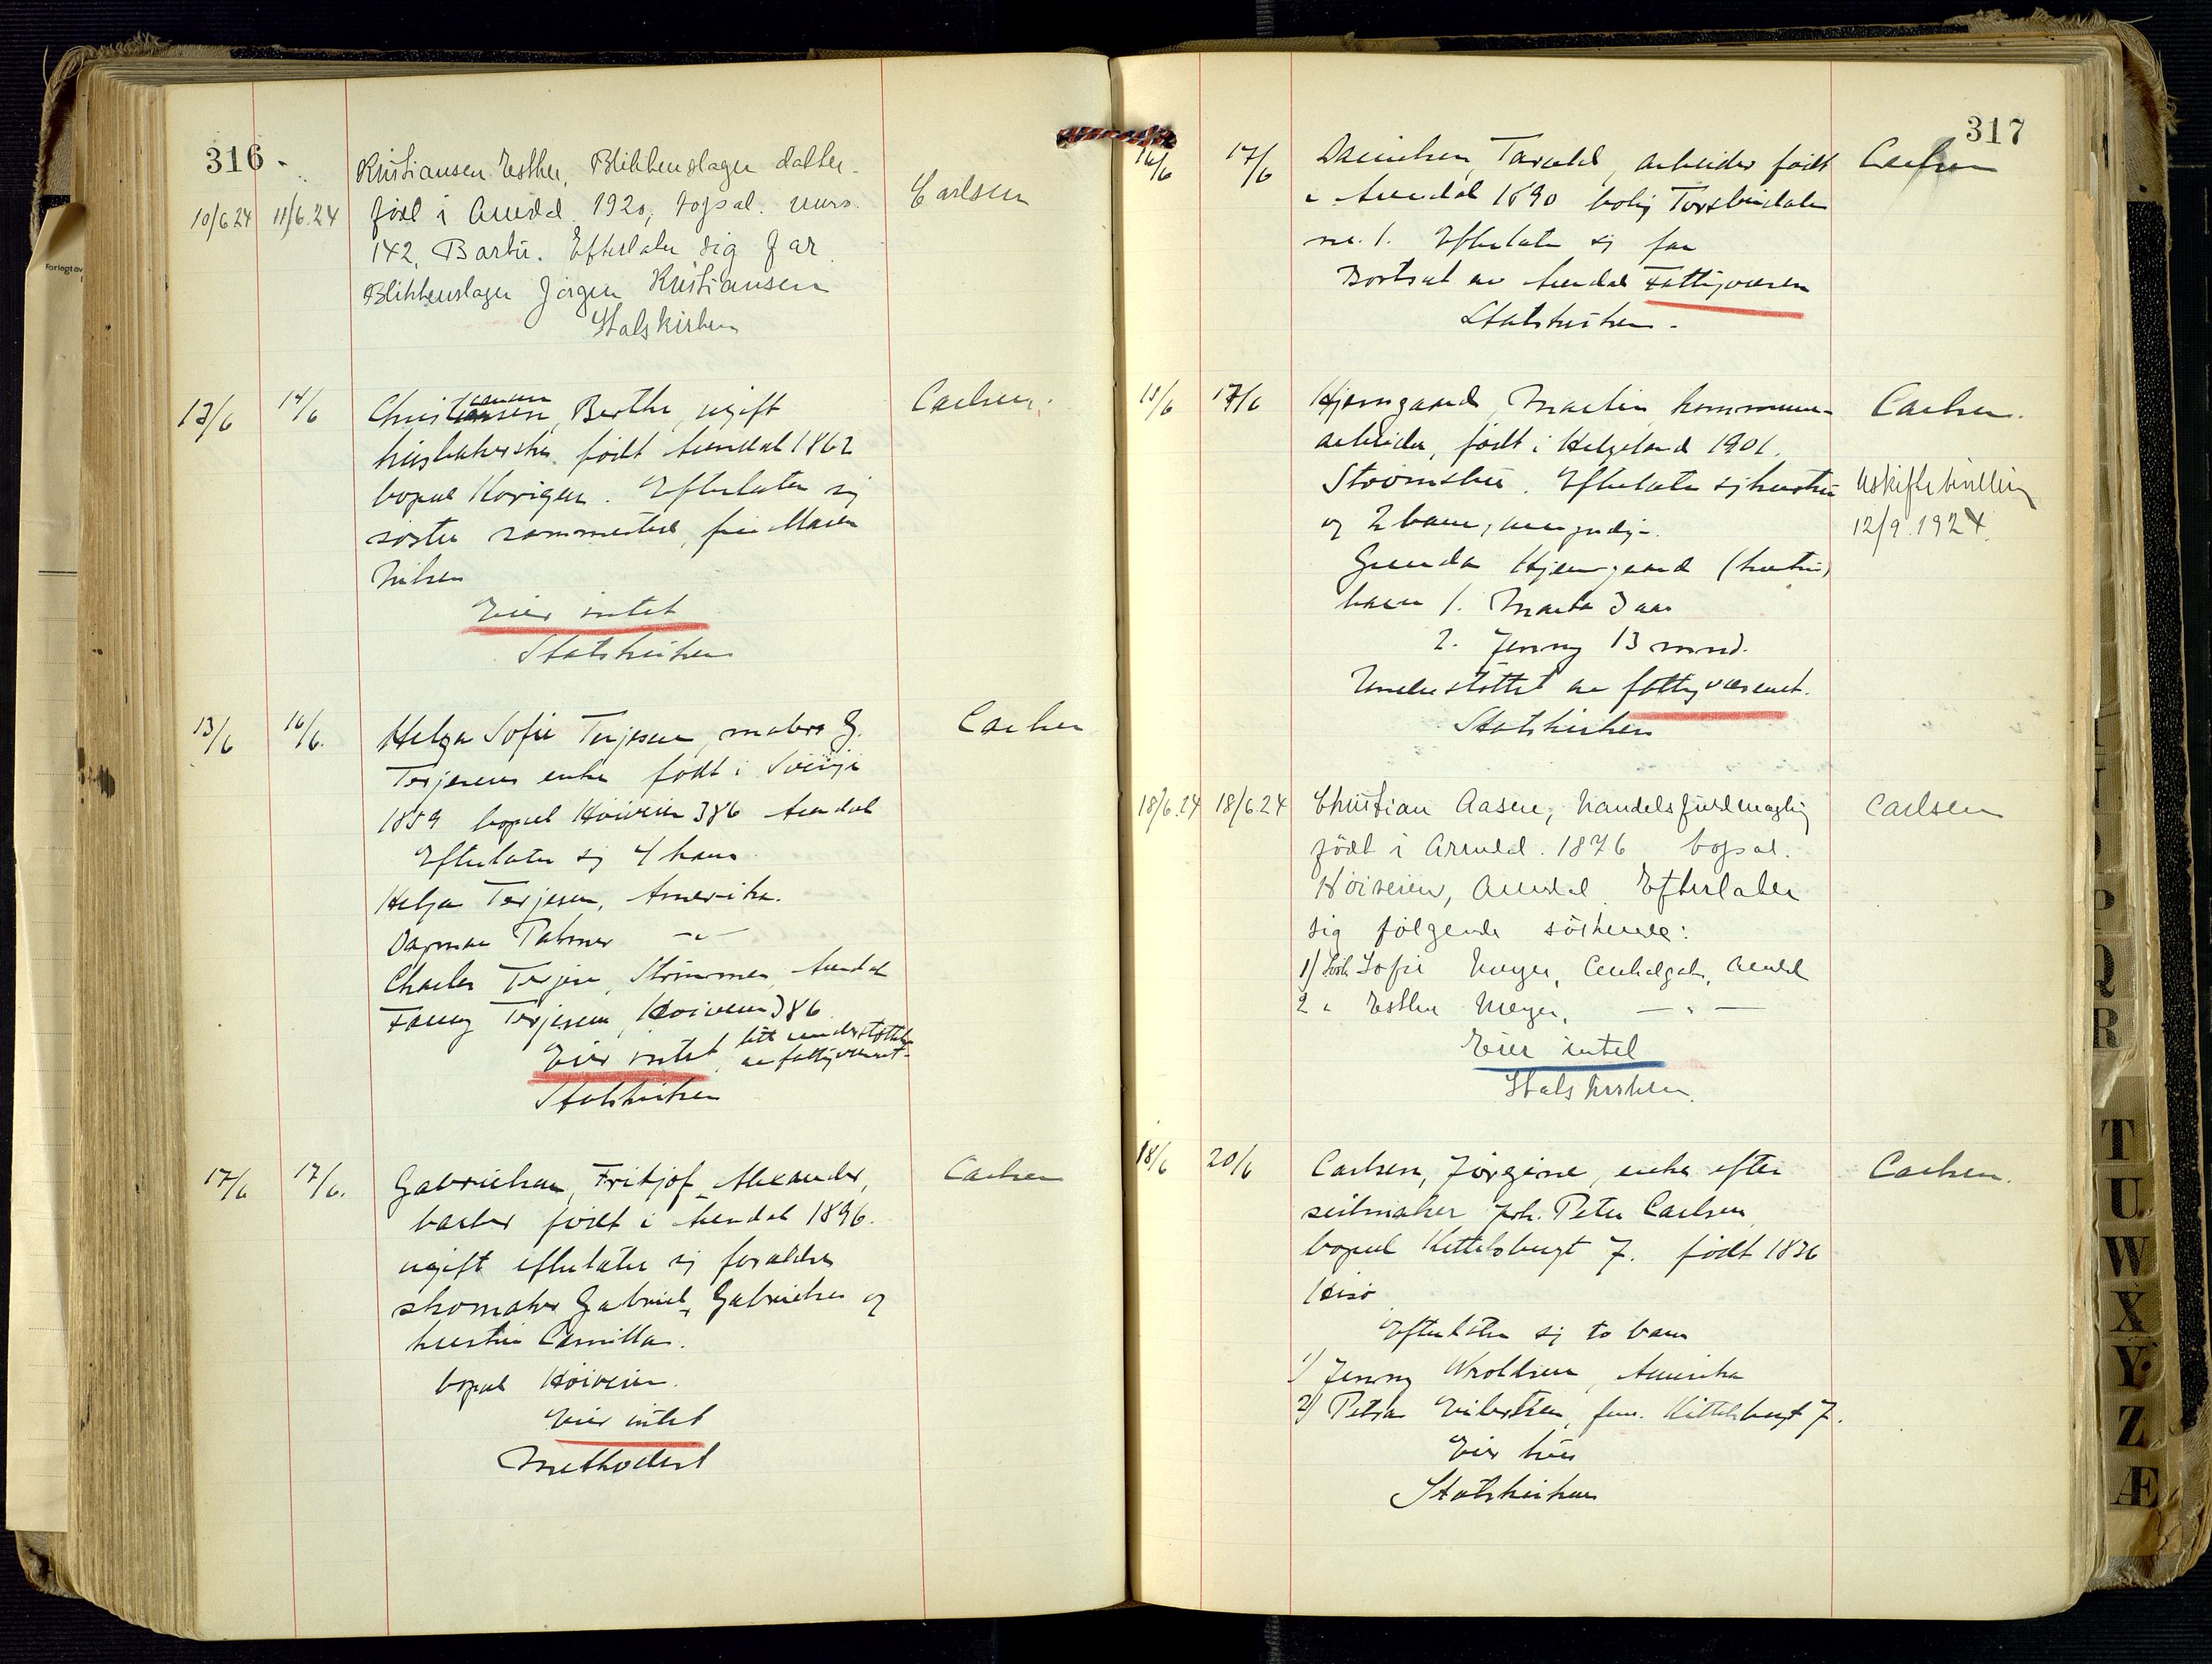 316
10/6 24 11/6.24 Kristiansen Esther, Blikkenslager datter.
født i Arendal 1920, bopæl. murs.
142, Barbu. Efterlater sig far
Blikkenslager Jørgen Kristiansen
Statskirken
Carlsen
13/6 14/6 Christensen, Berthe, ugift
husholderske født Arendal 1862
bopæl Kovigen. Efterlater sig
søster sammesteds, fru Maren
Nilsen
Eier intet
Statskirken
Carlsen.
13/6 16/6. Helga Sofie Terjesen, malers G.
Terjesens enke født i Sverige
1859 bopæl Høiveien 386 Arendal
Efterlater sig 4 barn.
Helga Terjesen, Amerika.
Dagmar Palmer -"-
Charles Terjesen, Strømmen, Arendal
Fanny Terjesen, Høiveien 386
Eier intet, litt understøttelse
av fattigvæsenet.
Statskirken
Carlsen
17/6 17/6. Gabrielsen, Fritjof Alexander,
barber født i Arendal 1896.
ugift efterlater sig forældre
skomaker Gabriel Gabrielsen og
hustru Camilla.
bopæl Høiveien.
Eier intet
Methodist
Carlsen
317
14/6 17/6 Danielsen, Tarald, arbeider født
i Arendal 1890 bolig Torsbudalen
nr. 1. Efterlater sig far
Bortsat av Arendal Fattigvæsen
Statskirken.
Carlsen
15/6 17/6 Hjemgaard, Martin kommune-
arbeider, født i Helgeland 1901.
Strømsbu. Efterlater sig hustru
og 2 barn, umyndige.
Gunda Hjemgaard (hustru)
barn 1. Marta 3 aar
2. Jenny 13 mnd.
Understøttet av fattigvæsenet.
Statskirken
Carlsen.
Uskiftebevilling
12/9.1924.
18/6.24 18/6.24 Christian Aasen, handelsfuldmægtig
født i Arendal. 1876 bopæl.
Høiveien, Arendal. Efterlater
sig følgende søskende:
1) Sofie Meyer, Arendal
2 " Esther Meyer, — " —
Eier intet
Statskirken.
Carlsen
18/6 20/6 Carlsen, Jørgine, enke efter
seilmaker Joh. Peter Carlsen
bopæl Kittelsbugt 7. født 1836
Hisø
Efterlater sig to barn
1) Jenny Wroldsen, Amerika
2) Petra Eilertsen, frue. Kittelsbugt 7.
Eier hus
Statskirken
Carlsen.
T
U
W
X
Y
Z
Æ
P
Q
R